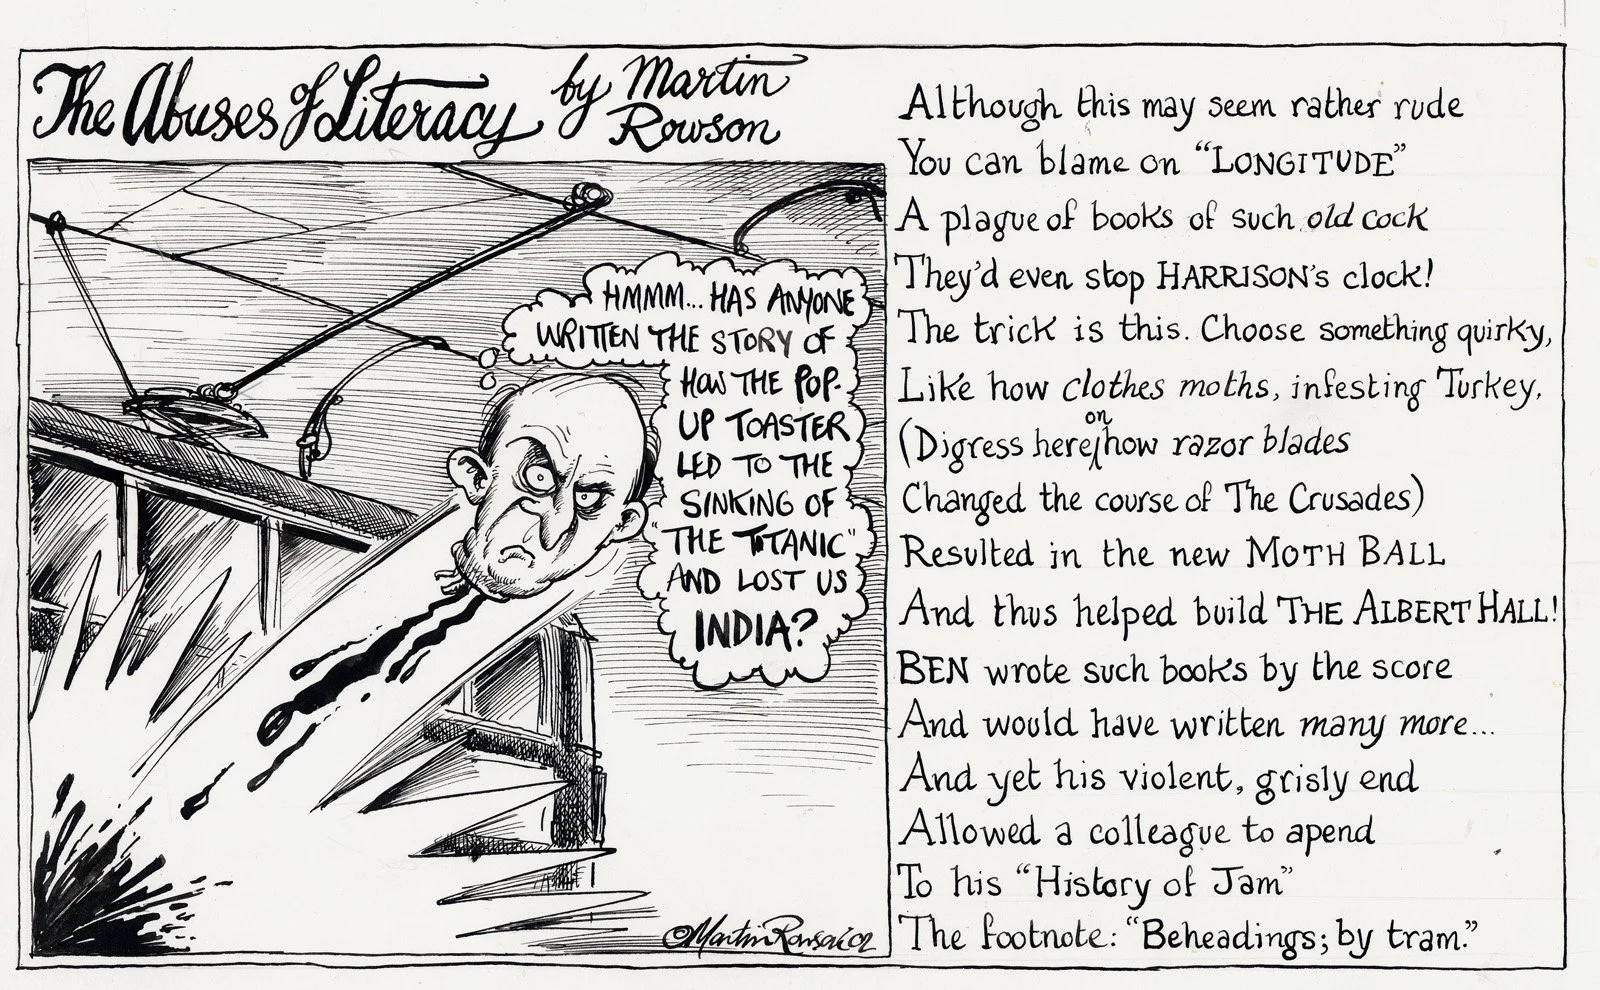 The Abuses of Literacy by Martin
Rowson
HMMM... HAS ANYONE
WRITTEN THE STORY OF
HOW THE POP-
UP TOASTER
LED TO THE
SINKING OF
"THE TITANIC"
AND LOST US
INDIA?
©Martin Rowson 02
Although this may seem rather rude
You can blame on "LONGITUDE"
A plague of books of such old cock
They'd even stop HARRISON'S clock!
The trick is this. Choose something quirky,
Like how clothes moths, infesting Turkey,
(Digress here on how razor blades
Changed the course of The Crusades)
Resulted in the new MOTH BALL
And thus helped build THE ALBERT HALL!
BEN wrote such books by the score
And would have written many more...
And yet his violent, grisly end
Allowed a colleague to apend
To his "History of Jam"
The footnote: "Beheadings; by tram."